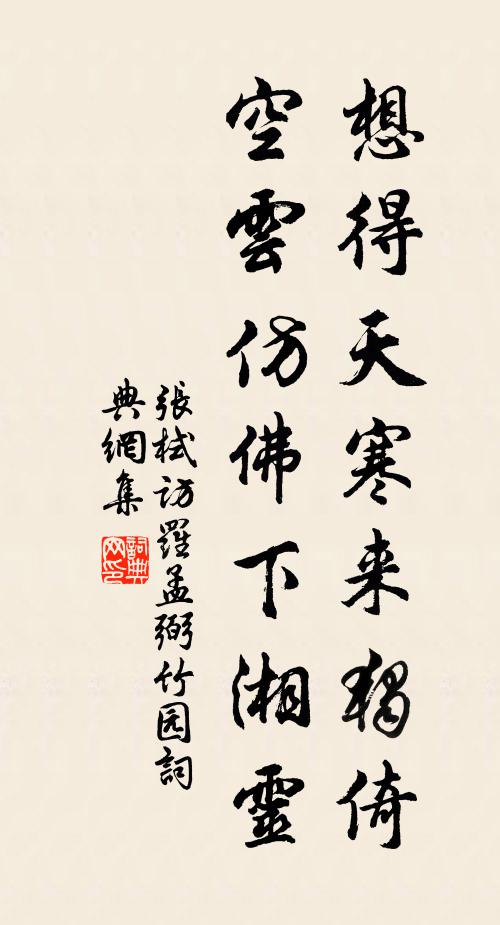 想得天寒来獨倚
空雲仿佛下湘靈
張栻访羅孟弼竹园詞
典網集
詞典网印